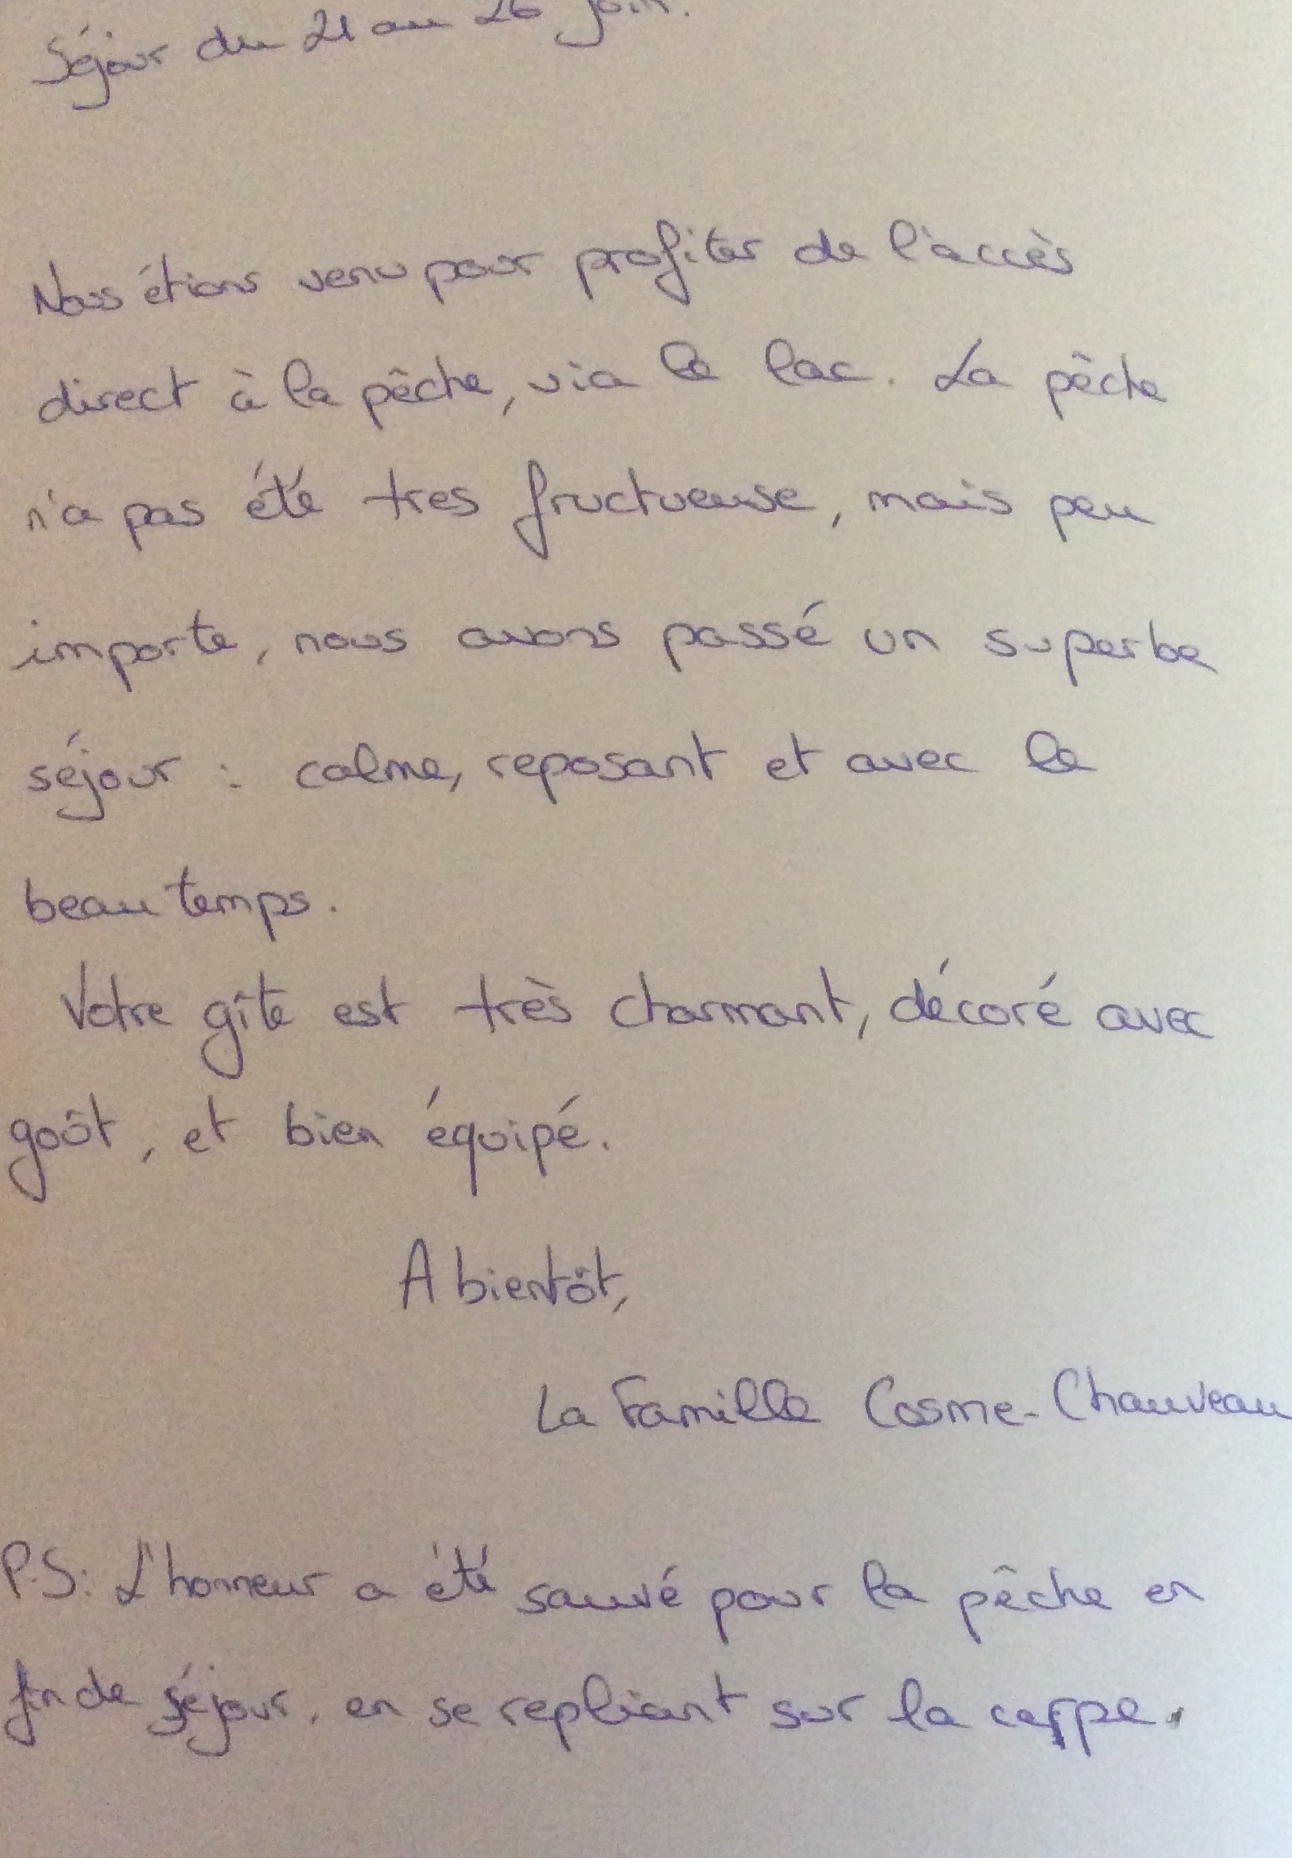 Séjour du 21 au 26 juin.
Nous étions venu pour profiter de l'accès
direct à la pêche, via le lac. La pêche
n'a pas été tres fructueuse, mais peu
importe, nous avons passé un superbe
séjour : calme, reposant et avec le
beau temps.
Votre gîte est très charmant, décoré avec
goût, et bien équipé.
A bientôt,
La Famille Cosme-Chauveau
P.S: L'honneur a été sauvé pour la pêche en
fin de séjour, en se repliant sur la carpe.